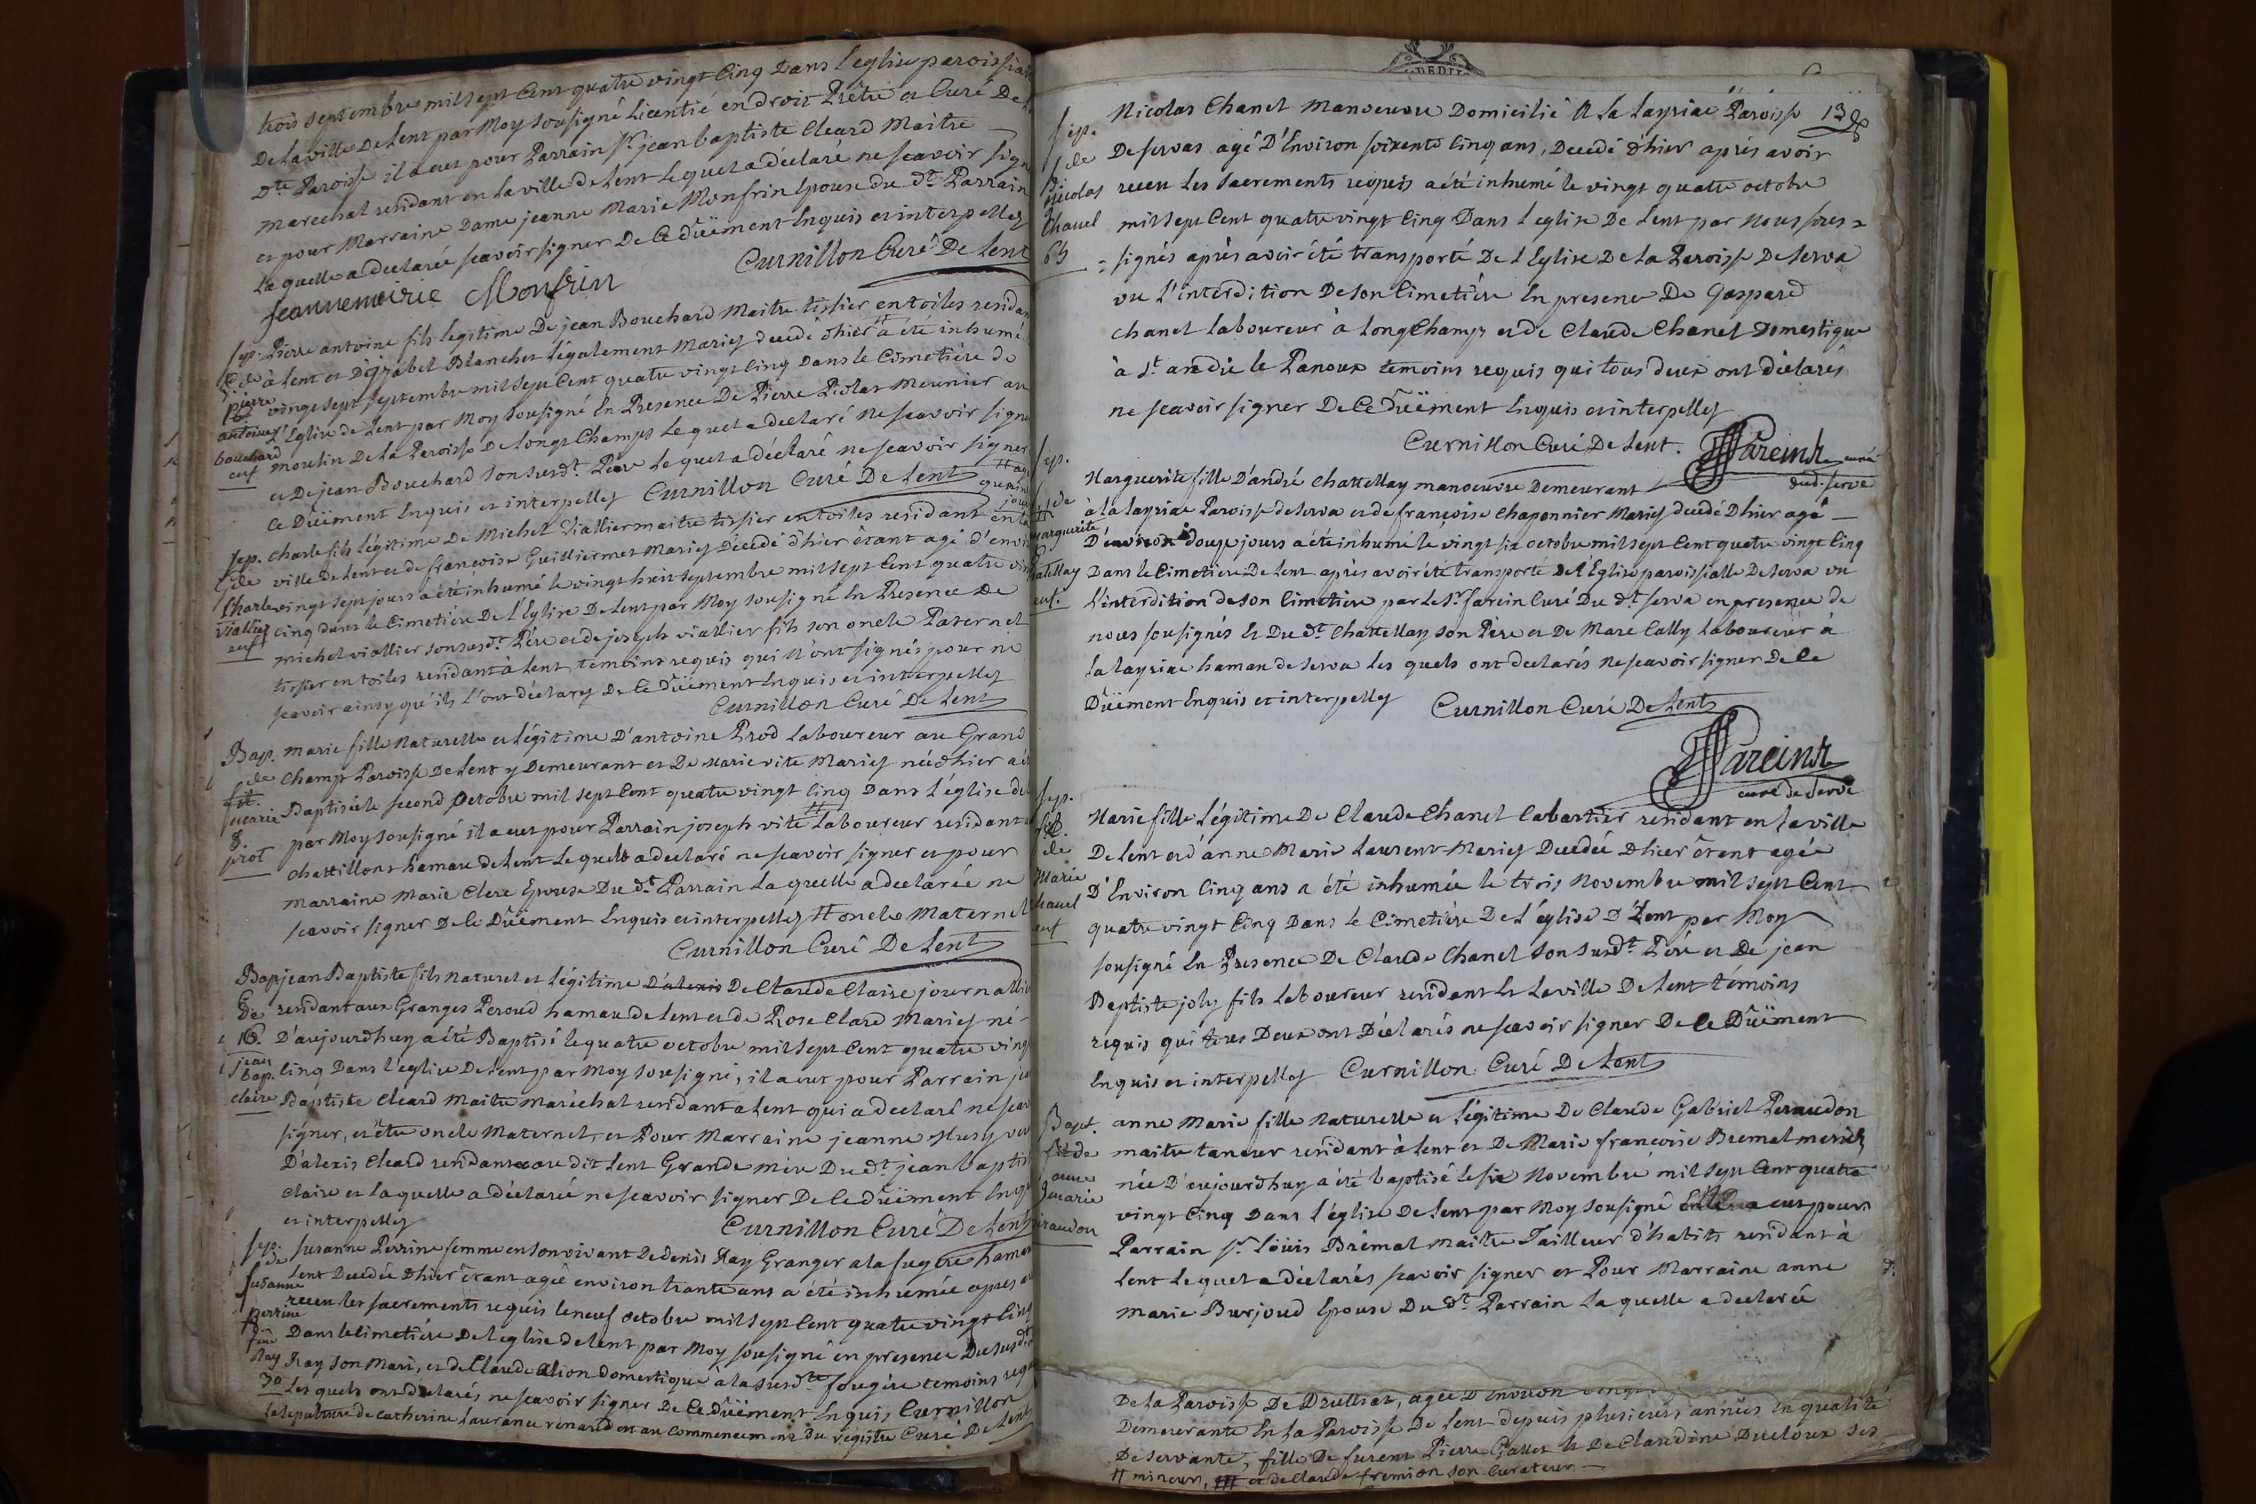 trois septembre mil sept Cent quatre vingt Cinq Dans l'eglise paroissial
De la ville De Lent par Moy sousigné Licentié en droit Prêtre et Curé De
Dte Paroisse il a eut pour Parrain Sr jean baptiste Cleard Maitre
marechal residant en la ville de Lent lequel a déclaré ne scavoir sign
et pour Marraine Dame jeanne Marie Monfrin Epouse du dt Parrain
Laquelle a declareé scavoir signer De Ce düement Enquis et interpelley
Jeannemairie Monfrin
Curnillon Curé De Lent
Sep.
de
pierre
antoine
bouchard
enf
Pierre antoine fils legitime De jean Bouchard Maitre tissier en toiles residan
à Lent et D'izabel Blanchet légalement Mariey decedé d'hier # a été inhumé
vingt sept septembre mil sept Cent quatre vingt Cinq Dans le Cimetière de
l'Eglise de Lent par Moy Sousigné En Presence De Pierre Piolat Meunier au
moulin De la Paroisse De longt Champs lequel a declaré ne scavoir signe
et De jean Bouchard Son susdt Père lequel a déclaré ne scavoir signer
Ce Düement Enquis et interpelley Curnillon Curé De Lent
Sep.
de
Charle
viallier
enf
Charle fils légitime De Michel Viallier maitre tissier en toiles residant en la
ville De Lent et de françoise Guilliermet Mariey Décedé d'hier étant agé d'envi
vingt sept jours a été inhumé le vingt huit septembre mil sept Cent quatre vin
cinq dans le Cimetière De l'Eglise De Lent par Moy sousigné En Presence De
michel viallier son susdt Père et de joseph viallier fils son oncle Paternel
tissier en toiles residant à Lent, temoins requis qui N'ont signés pour ne
scavoir ainsy qu'ils l'ont déclarey De Ce Düement Enquis et interpelley
Curnillon Curé De Lent
Bap.
de
marie fille Naturelle et Légitime D'antoine Prod Laboureur au Grand
Champ Paroisse De Lent y Demeurant et De Marie vite Mariey née d'hier a é
Baptisée le second octobre mil sept Cent quatre vingt Cinq Dans l'église de
par Moy sousigné il a eut pour Parrain joseph vite # Laboureur residant
chattillont hameau de Lent Lequel a declaré ne scavoir signer et pour
marraine Marie Clere Epouse Du dt Parrain Laquelle a declareé ne
scavoir signer De Ce Düement Enquis et interpelley # oncle Maternel
Curnillon Curé De Lent
Bap
De
16.
jean
bap.
claire
jean Baptiste fils naturel et Légitime D'alexis De Claude Claire journallie
residant aux Granges Peroud hameau de Lent et de Rose Cleard Mariey né
D'aujourdhuy a été Baptisé le quatre octobre mil sept Cent quatre ving
Cinq Dans l'eglise De Lent par Moy sousigné, il a eut pour Parrain je
Baptiste Cleard Maitre Maréchal residant a Lent qui a declaré ne scav
signer, et être oncle Maternel, et Pour Marraine jeanne veu
D'alexis Cleard residante au dit Lent Grande mère Du dt jean baptis
Claire et laquelle a déclareé ne scavoir signer De Ce düement Enqu
et interpelley
Curnillon Curé De Lent
Sep.
de
Susanne
perrine
fme
Ray
30
Susanne Perrine femme en son vivant De denis Ray Granger a la fugere hamea
Lent Decedée d'hier étant agée environ trante ans a été inhumée apres a
receu les sacrements requis le neuf octobre mil sept Cent quatre vingt Cinq
Dans le Cimetière De l'eglise de Lent par Moy sousigné en presence Du susdt
Ray Son Mari, et de Claude alion domestique à la susdte fougère temoins requ
Les quels ont declarés ne scavoir signer De Ce düement Enquis Curnillon
La sepulture de catherine Laurance renard est au commencement du registre Curé De Lent
13
Sep.
de
Nicolas
Chanel
65
Nicolas Chanel manoeuvre Domicilié A la layriac Paroisse
De servas agé D'Environ soixente Cinq ans, Decedé d'hier aprés avoir
receu Les Sacrements requis a été inhumé le vingt quatre octobre
mil sept Cent quatre vingt Cinq Dans L'eglise De Lent par nous sous=
=signés aprés avoir été transporté De L'Eglise De la Paroisse De Serva
vu L'interdition De son Cimetiére En presence De Gaspard
Chanel laboureur à long Champs et de Claude Chanel Domestique
à St andré le Panoux temoins requis qui tous deux ont déclarés
ne scavoir signer De Ce Düement Enquis et interpelley
Curnillon Curé De Lent. Fareins curé
dud. serve
Sep.
de
Marguerite
Chatellay
enf.
Marguerite fille D'andré Chattellay manoeuvre Demeurant
à la layriac Paroisse de Serva et de françoise Chaponnier Mariey decedé D'hier agé
D'environ douze jours a été inhumé le vingt six octobre mil sept Cent quatre vingt Cinq
Dans le Cimetiere De Lent aprés avoir été transporté De l'Église paroissialle De serva vu
L'interdition de son Cimetiere par le Sr farein Curé Du dt Serva en presence de
nous sousignés Et Du dt Chattellay son Père et De Marc Cally laboureur à
la layriac hameau de serva Les quels ont declarés ne scavoir signer De Ce
Düement Enquis et interpelley Curnillon Curé De Lent
Fareins
curé de Serve
Sep.
de
Marie
Chanel
enf
Marie fille Légitime De Claude Chanel Cabartier residant en la ville
De Lent et d'anne Marie Laurent Mariey Decedée d'hier étent agée
D'Environ Cinq ans a été inhumée le trois Novembre mil sept Cent
quatre vingt Cinq Dans le Cimetiére De L'église D'Lent par Moy
sousigné En Presence De Claude Chanel son susdt Père et De jean
Baptiste joly fils laboureur residant En la ville De Lent témoins
requis qui tous Deux ont Déclarés ne scavoir signer De Ce Düement
Enquis et interpelley Curnillon Curé De Lent
Bapt.
de
anne
marie
Peraudon
anne Marie fille Naturelle et légitime De Claude Gabriel Peraudon
maitre tanneur residant à Lent et De Marie françoise Bremal Mariey
née D'aujourdhuy a été baptisé le six Novembre mil sept Cent quatre
vingt Cinq Dans l'église De Lent par Moy sousigné a eut pour
Parrain Sr Loüis Brémal maitre Tailleur d'habits residant à
Lent lequel a déclarés scavoir signer et Pour Marraine anne
Marie Burjoud Epouse Du dt Parrain Laquelle a declareé
De la Paroisse De Druilliat, agée D'Environ vingt
Demeurante En la Paroisse De Lent depuis plusieurs années En qualité
De servante, fille De furent Pierre Gallet Et De Claudine Ducloux ses
# mineurs, et de Claude fremion son Curateur